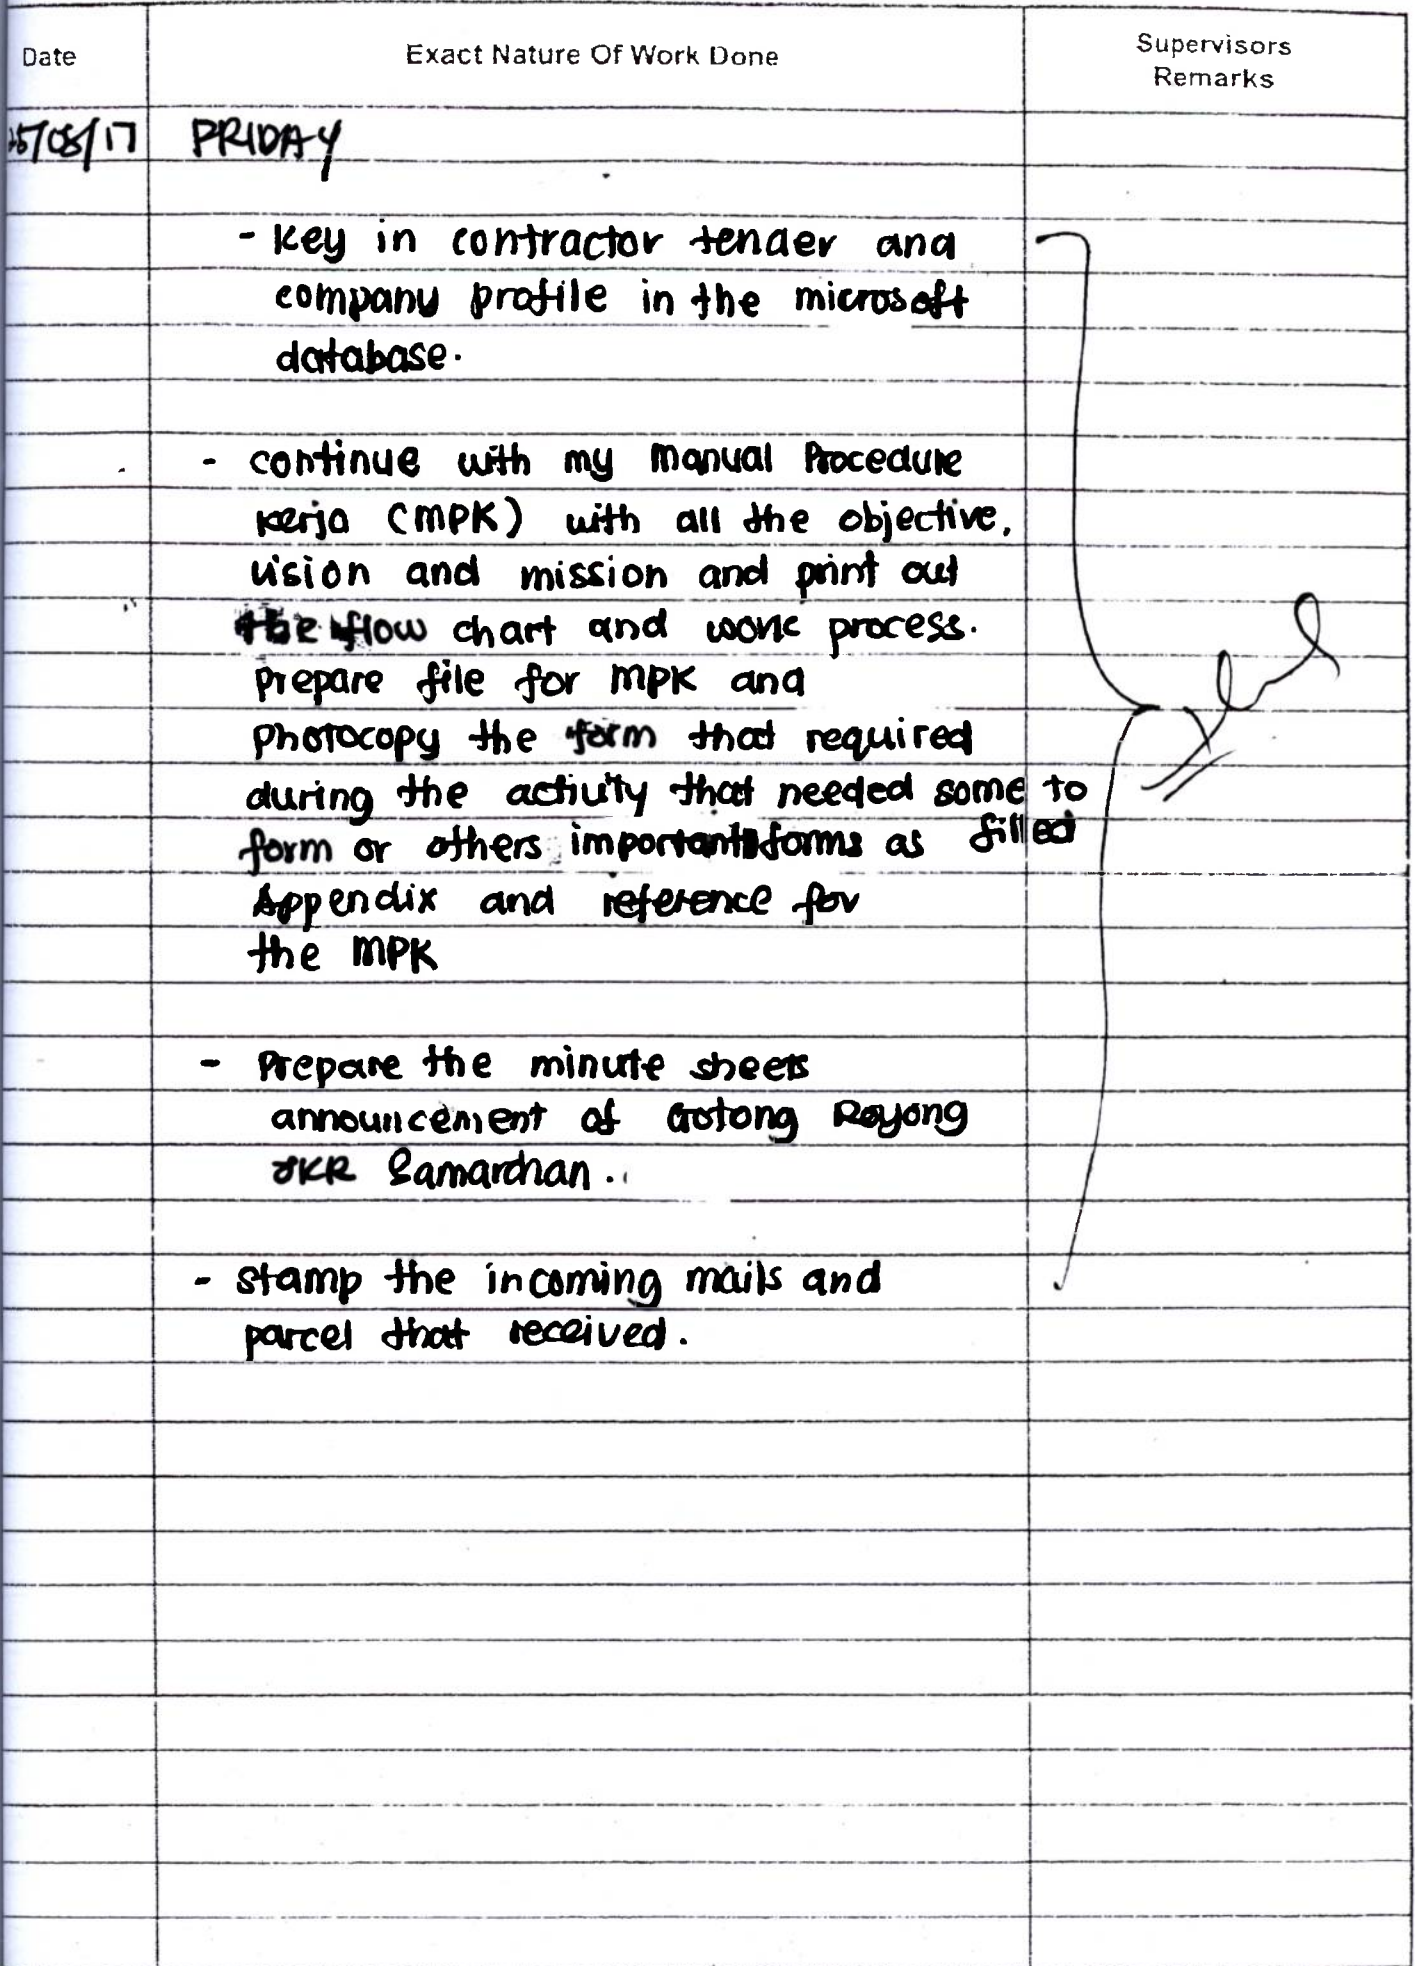 Date
Exact Nature Of Work Done
Supervisors
Remarks
25/08/17 FRIDAY
- key in contractor tender and
company profile in the microsoft
database.
- continue with my Manual Procedure
Kerja (MPK) with all the objective,
vision and mission and print out
the flow chart and work process.
Prepare file for MPK and
photocopy the form that required
during the activity that needed some to
form or others important forms as filled
Appendix and reference for
the MPK
- Prepare the minute sheets
announcement of Gotong Royong
JKR Samarahan.
- stamp the incoming mails and
parcel that received.